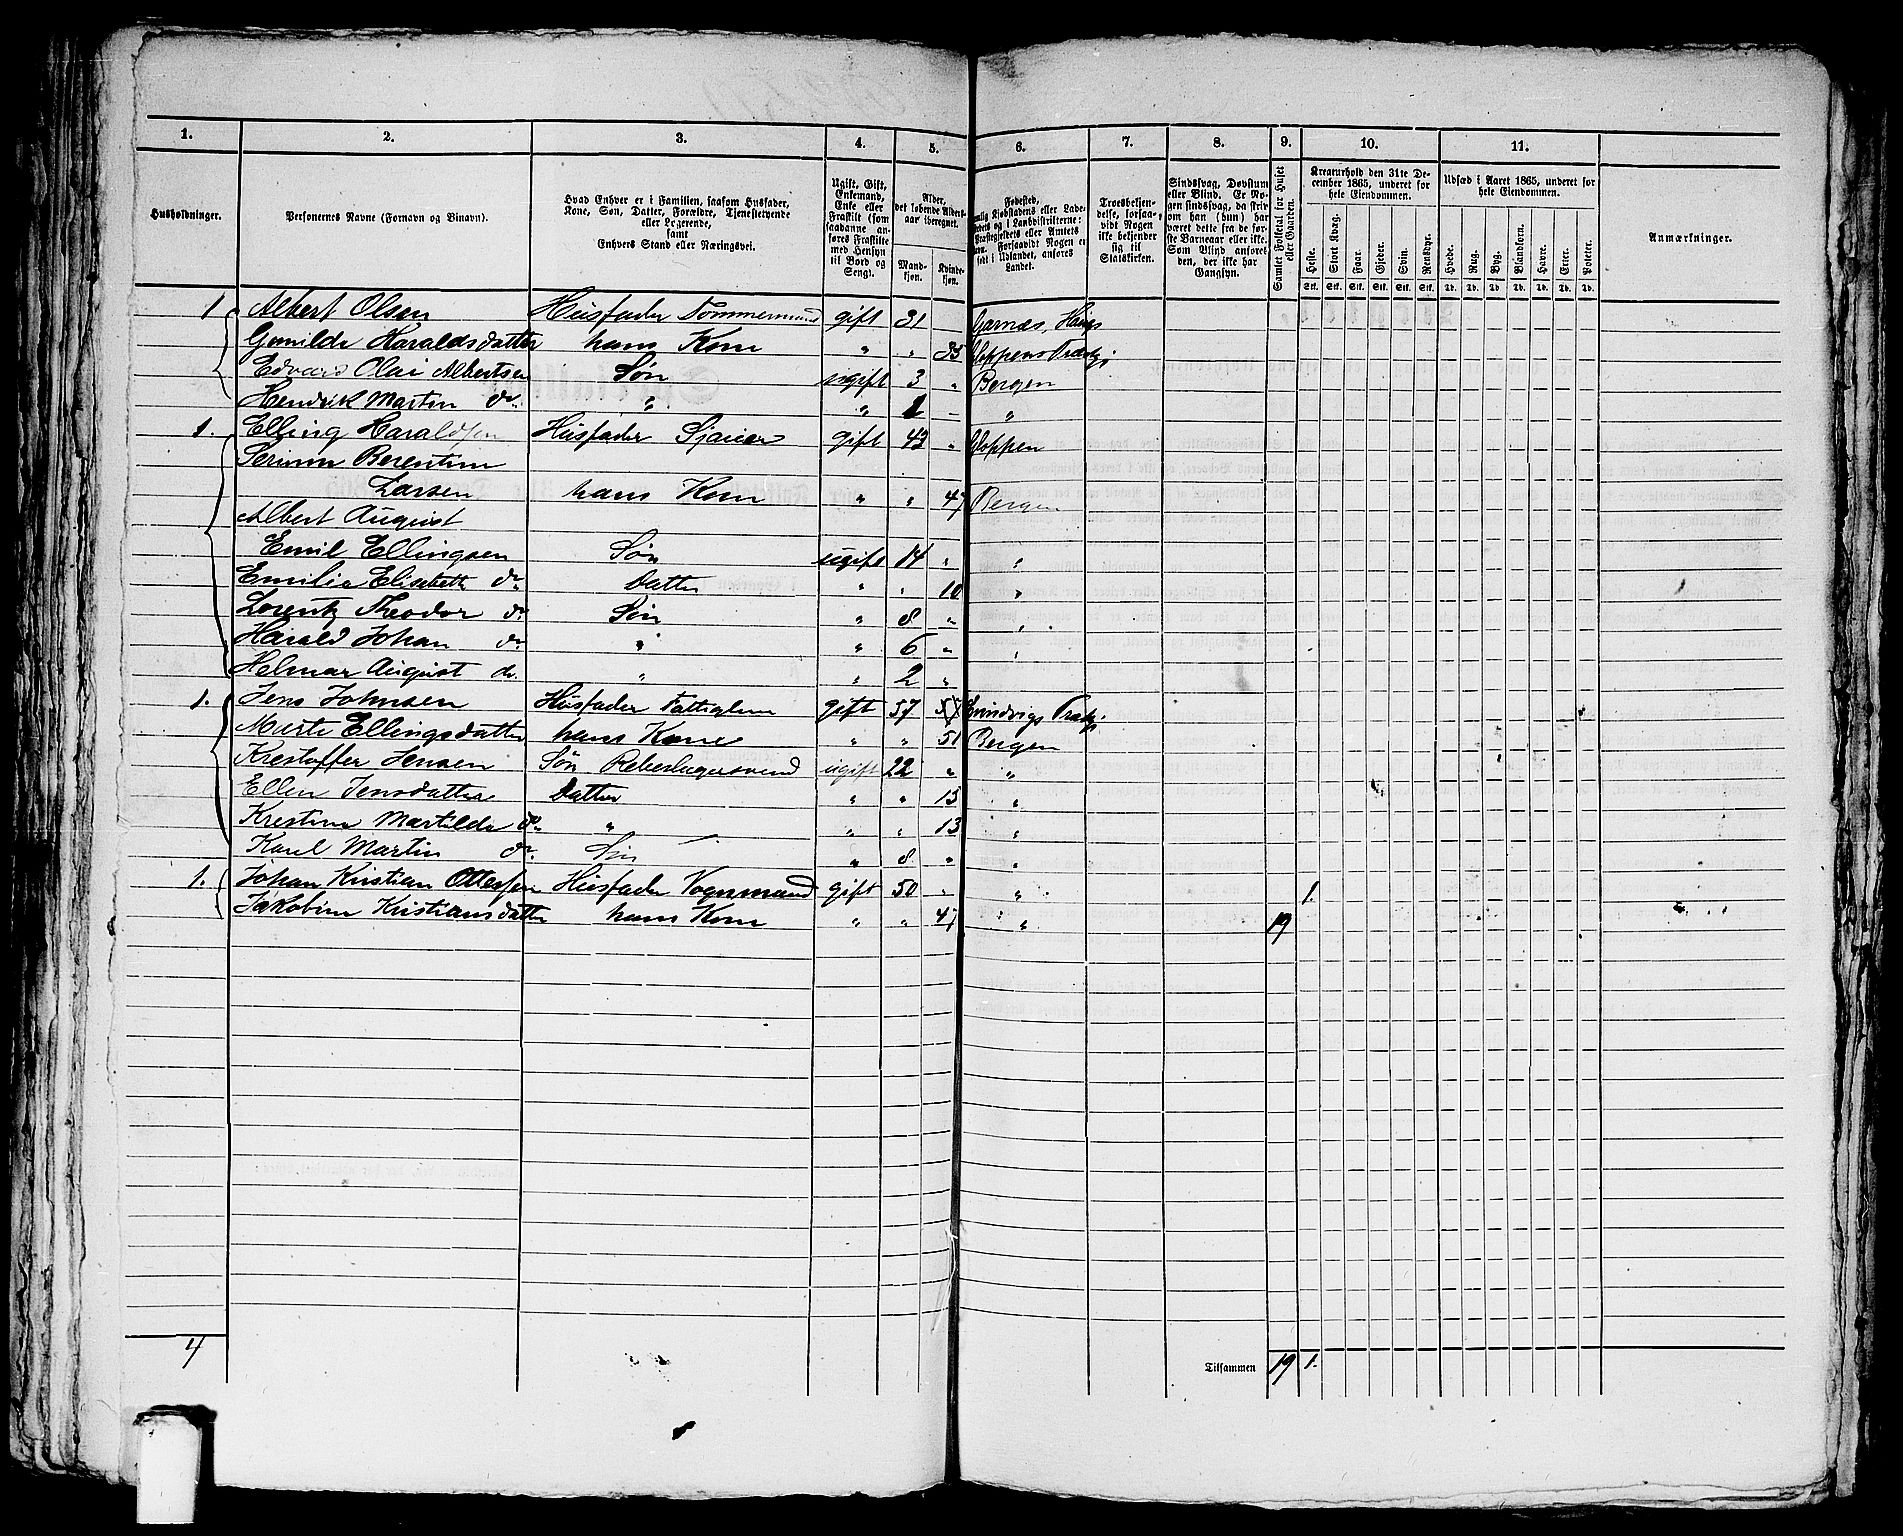 1. 2. 3. 4. 5. 6. 7. 8. 9. 10. 11.
Husholdninger.
Personernes Navne (Fornavn og Binavn).
Hvad Enhver er i Familien, saasom Husfader,
Kone, Søn, Datter, Forældre, Tjenestetyende
eller Logerende,
samt
Enhvers Stand eller Næringsvei.
Ugift, Gift,
Enkemand,
Enke eller
Fraskilt (som
saadanne an-
føres Fraskilte
med Hensyn
til Bord og
Seng).
Alder,
det løbende Alders-
aar iberegnet.
Mand-
kjøn.
Kvinde-
kjøn.
Fødested,
Troesbekjen-
delse, forsaa-
vidt Nogen
ikke bekjender
sig til
Statskirken.
Sindssvag, Døvstum
eller Blind. Er No-
gen sindssvag, da skriv
om han (hun) har
været dette fra de før-
ste Barneaar eller ikke.
Som Blind anføres
den, der ikke har
Gangsyn.
Samlet Folketal for Huset
eller Gaarden.
Kreaturhold den 31te De-
cember 1865, underet for
hele Eiendommen.
Heste. Stort Kvæg. Faar. Gjeder. Svin. Rensdyr.
Stk. Stk. Stk. Stk. Stk. Stk.
Udsæd i Aaret 1865, underet for
hele Eiendommen.
Hvede. Rug. Byg. Blandkorn. Havre. Erter. Poteter.
Td. Td. Td. Td. Td. Td. Td.
Anmærkninger.
1 Albert Olsen Husfader Tømmermand gift 31 Garnæs, Haugs
Gunilde Haraldsdatter hans Kone " " 35 Gloppens Præstgj.
Edvard Olai Albertsen Søn ugift 3 " Bergen
Hendrik Marten do. " " 1 "
1. Elling Haraldsen Husfader Sjauer gift 43 " Gloppen
Serinne Berentine
Larsen hans Kone " " 47 Bergen
Albert August
Emil Ellingsen Søn ugift 14 " "
Emilie Elisabeth do. Datter " " 10 "
Lorentz Theodor do. Søn " 8 " "
Harald Johan do. " " 6 " "
Helmar August do. " " 2 "
1. Jens Johnsen Husfader Fattiglem gift 57 57 Evindvigs Præstgj.
Marte Ellingsdatter hans Kone " " 51 Bergen
Krestoffer Jensen Søn Rebslagersvend ugift 22 " "
Ellen Jensdatter Datter " " 13 "
Krestine Martilde do. " " " 13 "
Karel Martin do. Søn " 8 " "
1. Johan Kristian Ottessen Husfader Vognmand gift 50 " " 1.
Jakobine Kristiansdatter hans Kone " " 47 " 19
4 Tilsammen 19 1.